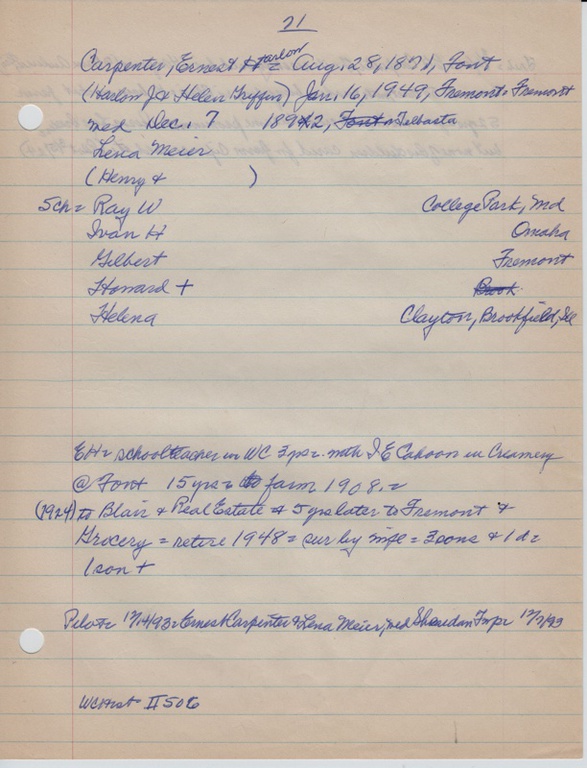 21
Carpenter, Ernest H = Harlon Aug. 28, 1871, Font
(Harlon J & Helen Griffin) Jan. 16, 1949, Fremont = Fremont
med Dec. 7 1892, Font = Telbasta
Lena Meier
(Henry & )
5ch = Ray W College Park, Md
Ivan H Omaha
Gilbert Fremont
Howard + Brook
Helena Clayton, Brookfield, Ill
EH = schoolteacher in WC 3 yrs = with I E Cahoon in Creamery
@ Font 15 yrs = to farm 1908. =
(1924) to Blair & Real Estate & 5 yrs later to Fremont &
Grocery = retire 1948 = sur by wife = 3 sons & 1 d =
1 son +
Pilot = 12/14/93 = Ernest Carpenter & Lena Meier, med Sheridan Twp = 12/7/93
WC Hist = II 506